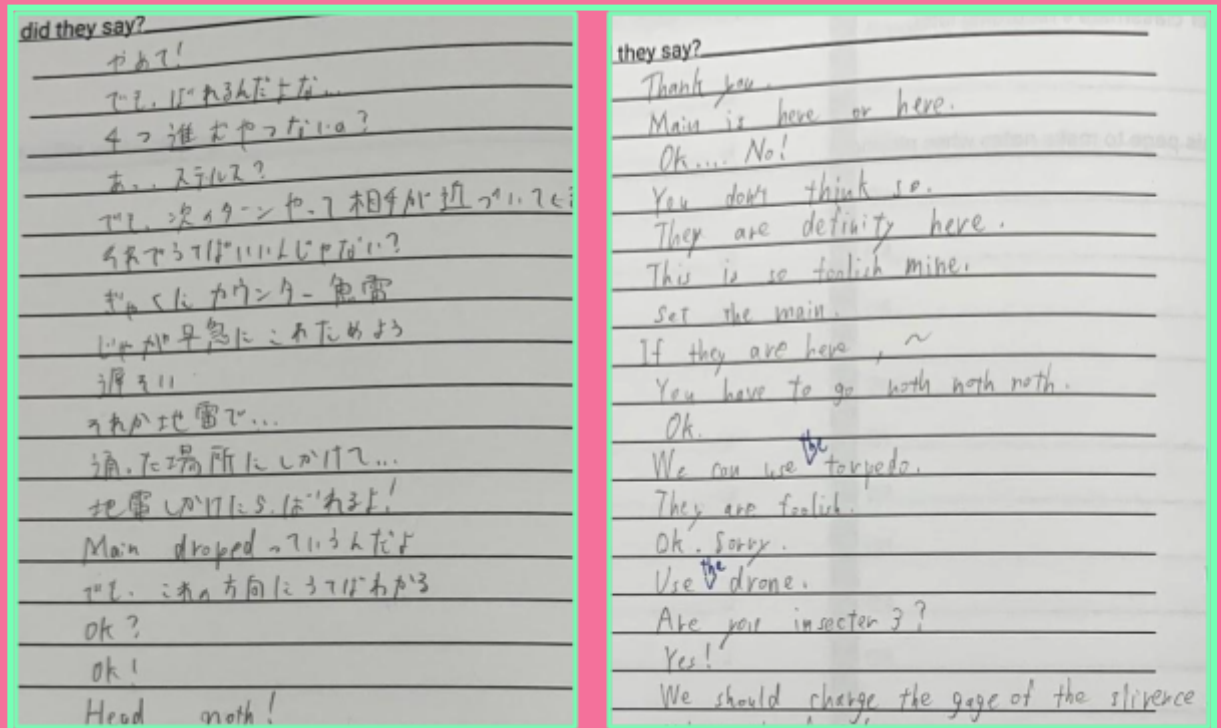 did they say?
やあて!
でも、ばれるんだよな...
4つ進むやつないの?
あ、、ステルス?
でも、次のターンやって相手が近づいてく
それでうてばいいんじゃない?
ぎゃくにカウンター魚雷
じゃが早急にこれためよう
遅そい
それか地雷で...
通った場所にしかけて...
地雷しかけたら、ばれるよ!
Main droped っていうんだよ
でも、これの方向にうてばわかる
Ok?
Ok!
Head noth!
they say?
Thank you.
Main is here or here.
Ok.... No!
You don't think so.
They are definity here.
This is so foolish mine.
Set the main.
If they are here, ~
You have to go noth noth noth.
Ok.
We can use the torpedo.
They are foolish.
Ok. Sorry.
Use the drone.
Are you insecter 3?
Yes!
We should charge the gage of the slirence